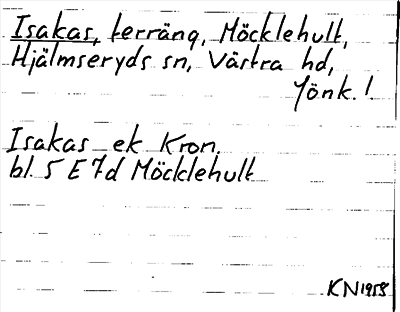 Isakas, terräng, Möcklehult,
Hjälmseryds sn, Västra hd,
Jönk. l.
Isakas ek Kron.
bl. 5 E 7d Möcklehult
KN 1958